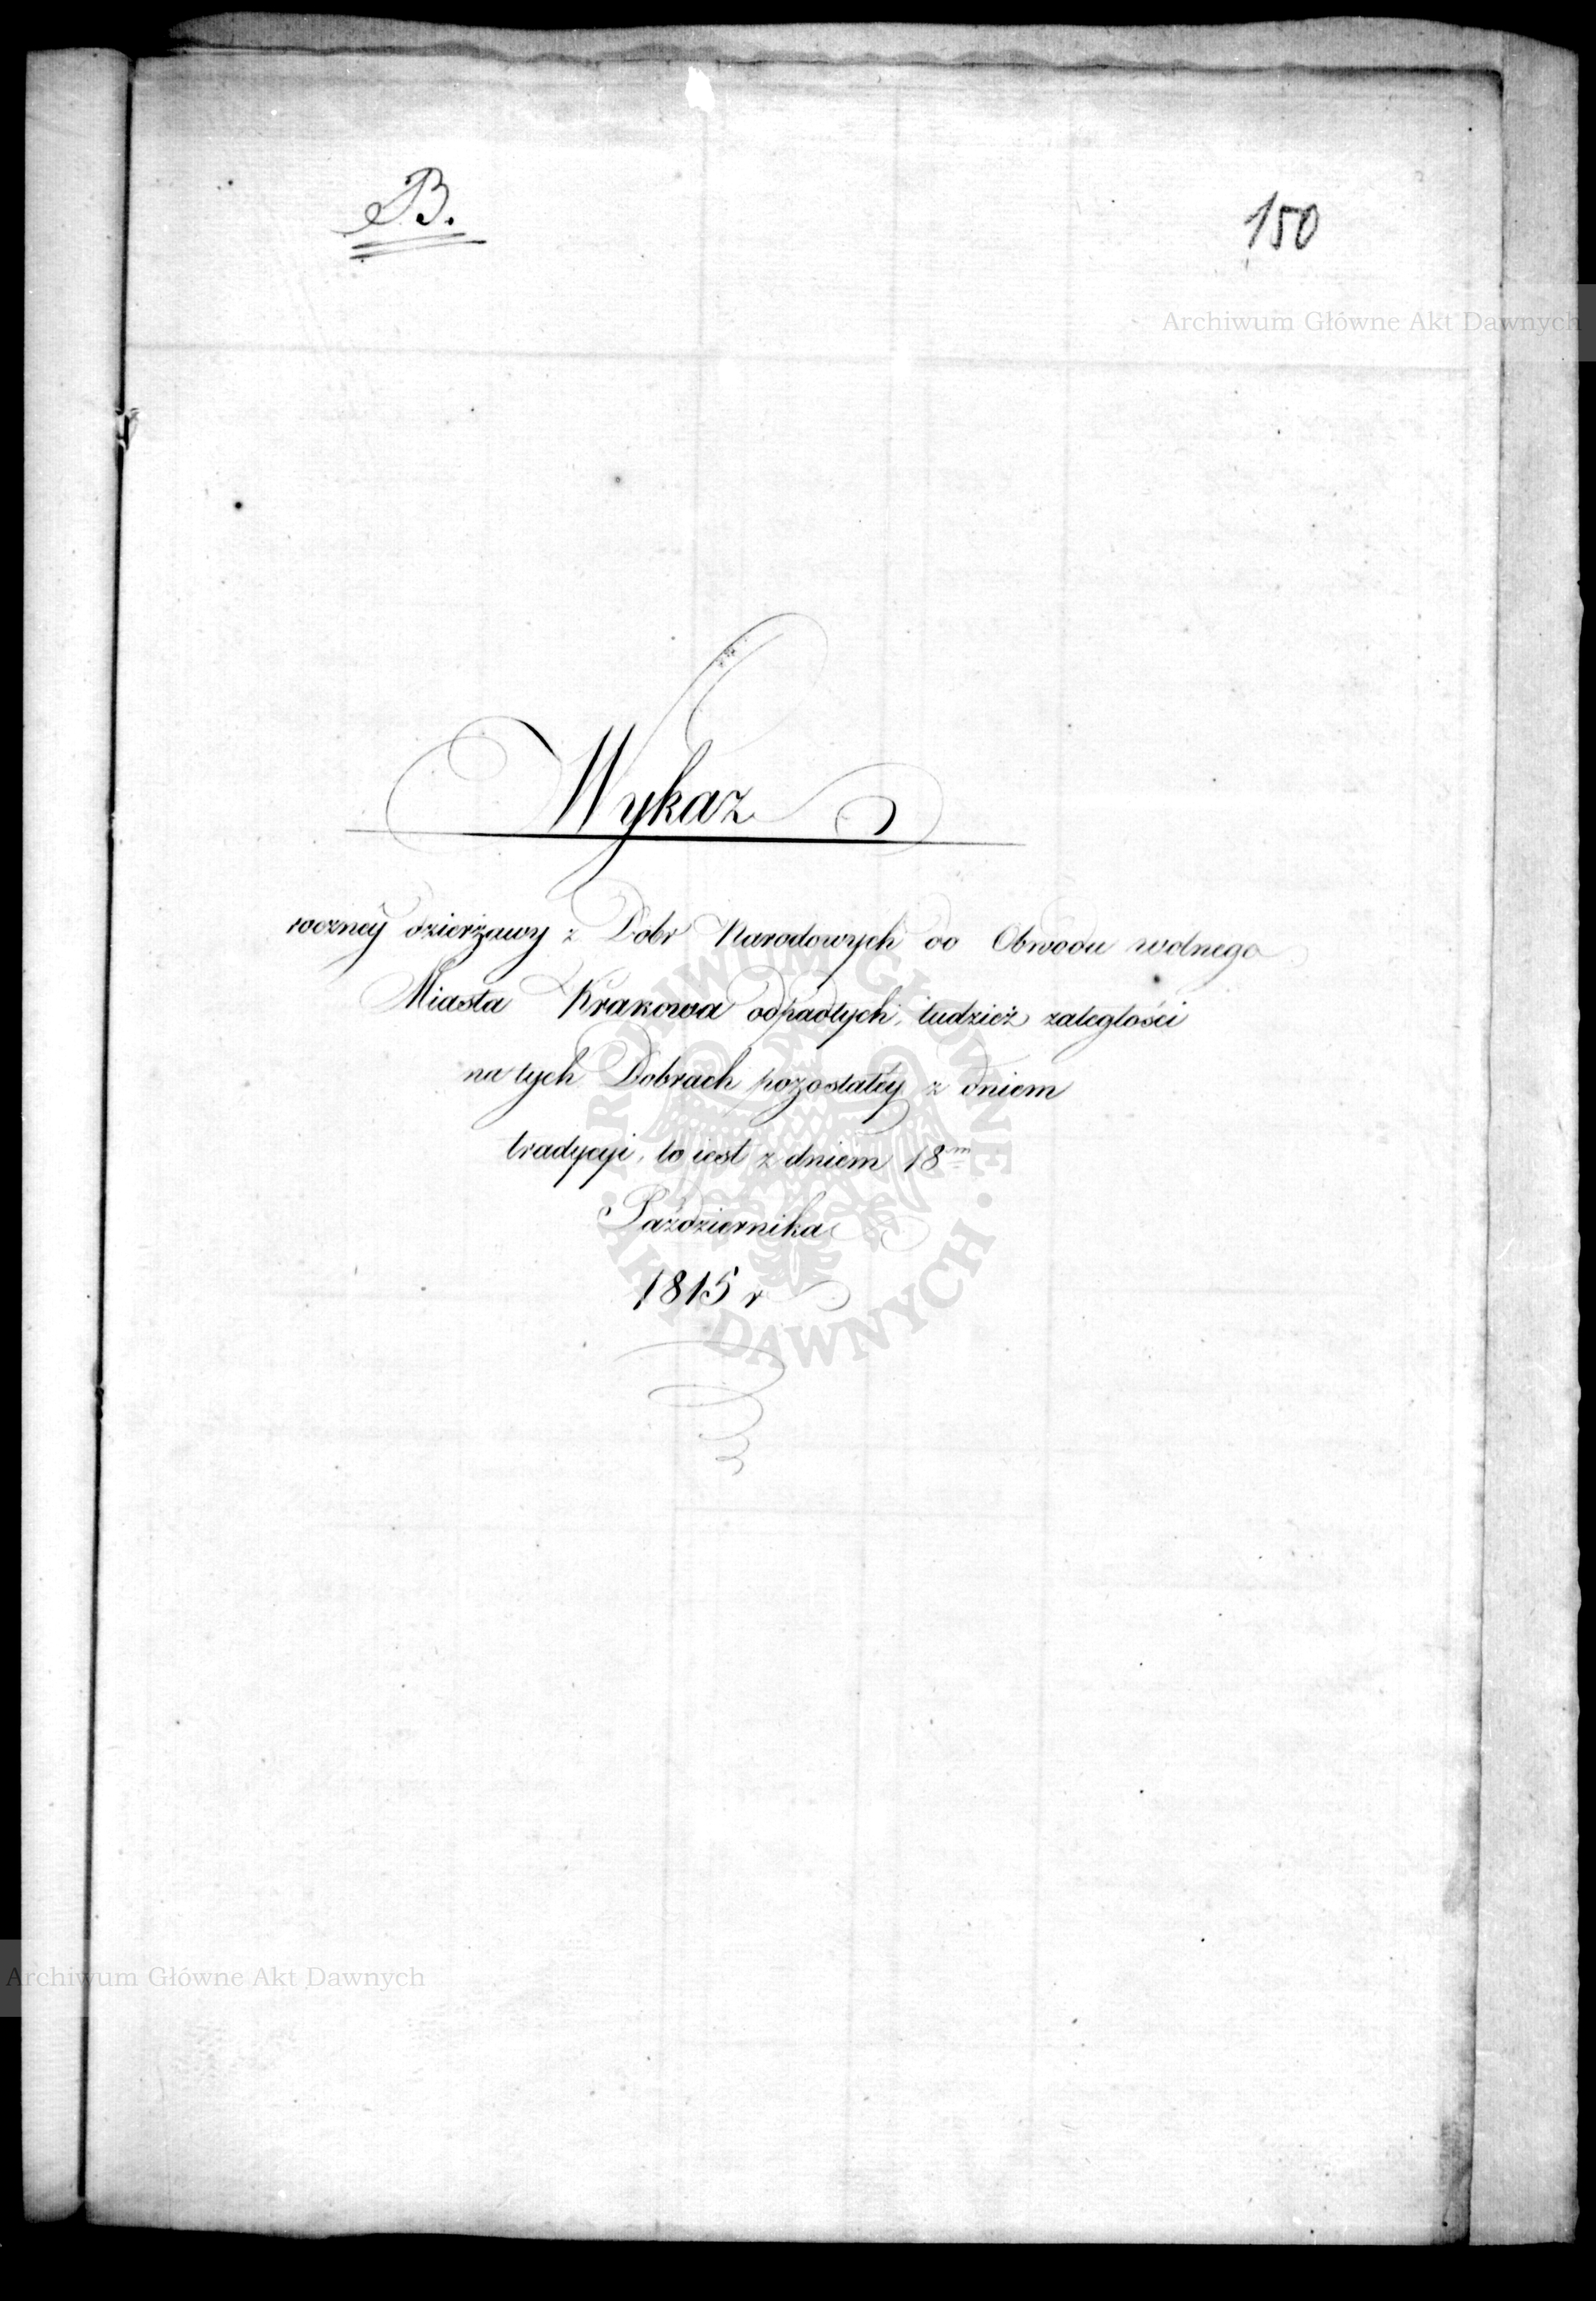 B.
150
Archiwum Główne Akt Dawnych
Wykaz
roczney dzierżawy z Dobr Narodowych do Obwodu wolnego
Miasta Krakowa odpadłych, tudzież zaległości
na tych Dobrach pozostałéy z dniem
tradycyi, to iest z dniem 18m
Października
1815 r
ARCHIWUM GŁÓWNE
AKT DAWNYCH
Archiwum Główne Akt Dawnych